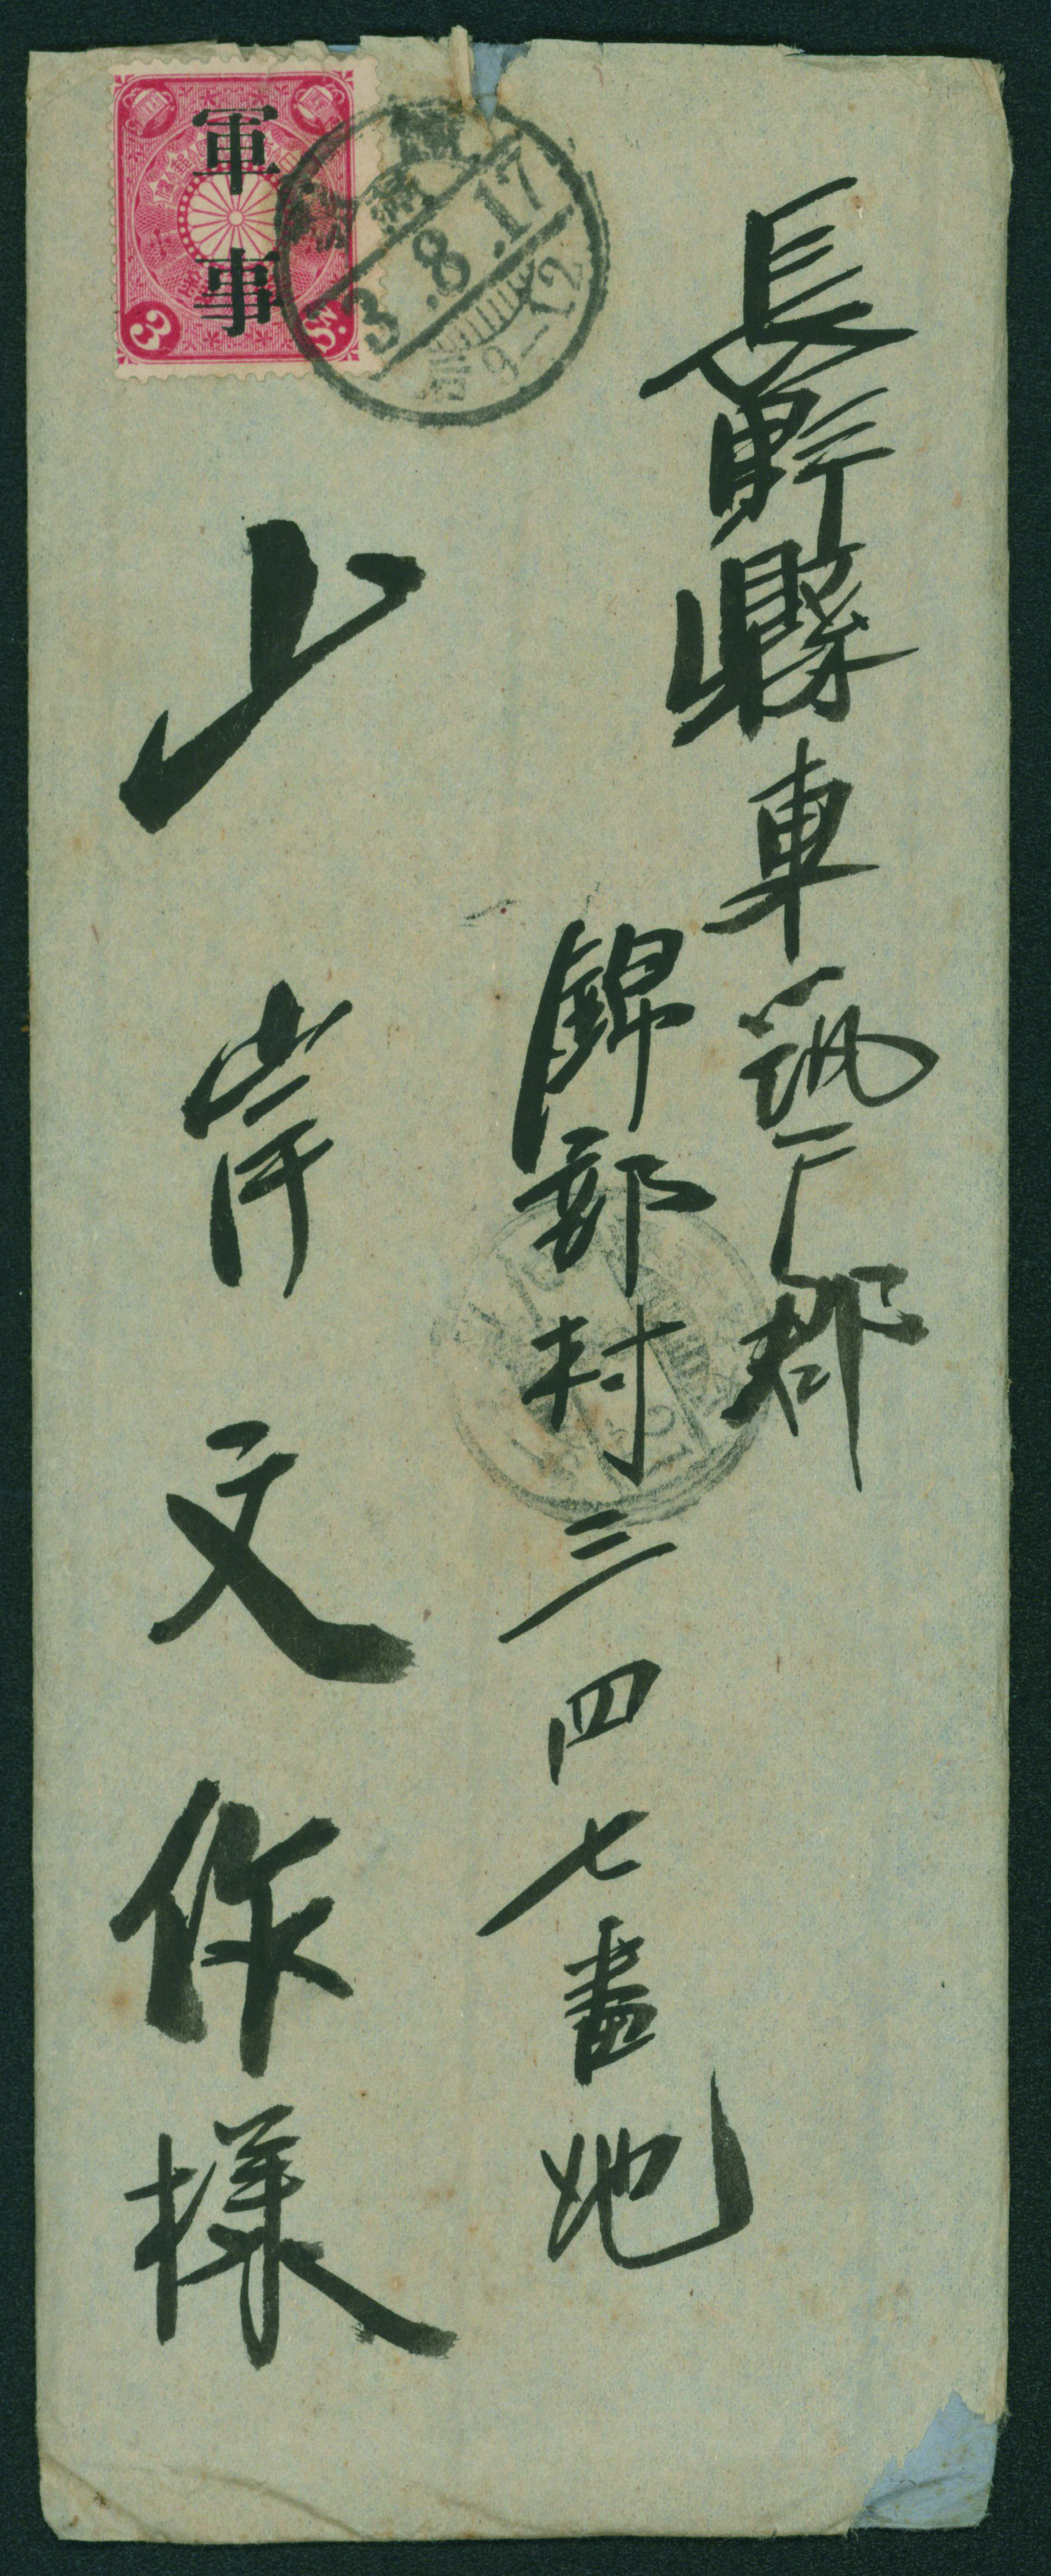 長野縣東筑摩郡
錦部村三四七番地
山岸文作様
軍事
3 3
3.8.17
9-12